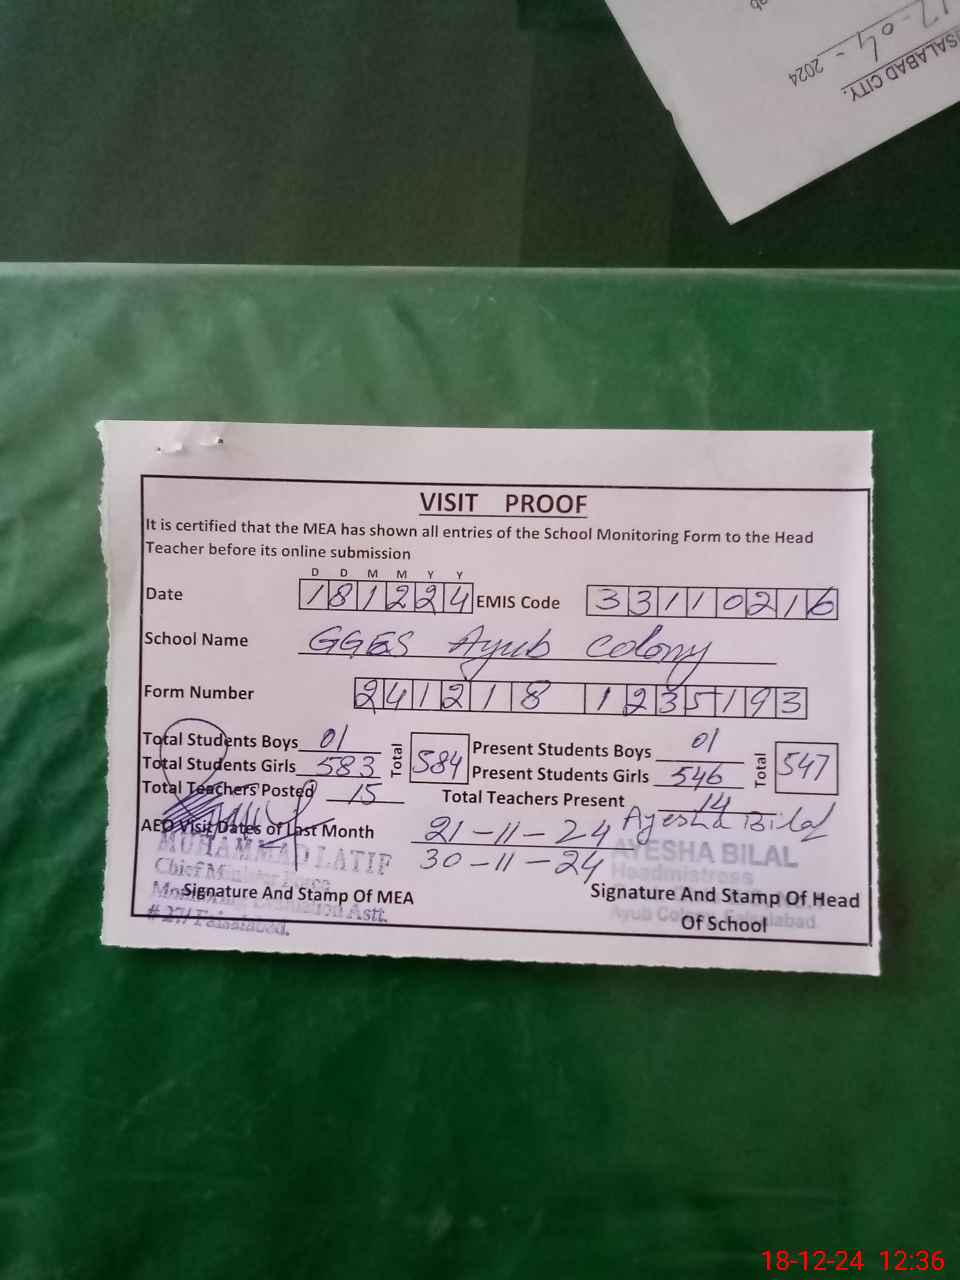 2024
SALABAD CITY.
VISIT PROOF
It is certified that the MEA has shown all entries of the School Monitoring Form to the Head
Teacher before its online submission
D D M M Y Y
Date 181224 EMIS Code 33110216
School Name GGES Ayub Colony
Form Number 241218 1235193
Total Students Boys 01 Total 584 Present Students Boys 01 Total 547
Total Students Girls 583 Present Students Girls 546
Total Teachers Posted 15 Total Teachers Present 14
AEO Visit Dates of Last Month 21-11-24 Ayesha Bilal
30-11-24
MUHAMMAD LATIF AYESHA BILAL
Chief Minister Headmistress
Signature And Stamp Of MEA Signature And Stamp Of Head
Astt.
# 27/ Faisalabad. Ayub Faisalabad
Of School
18-12-24 12:36